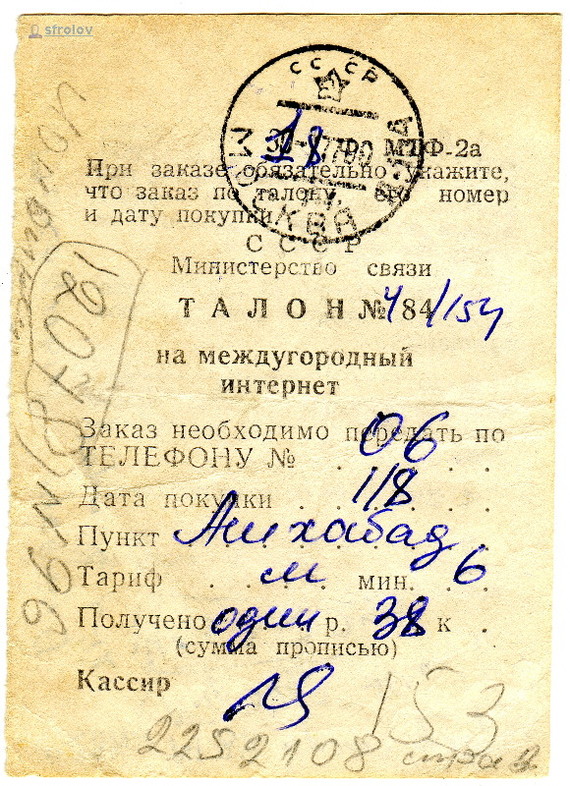 sfrolov
СССР
МОСКВА
18
Ф. МТФ-2а
При заказе обязательно укажите,
что заказ по талону, его номер
и дату покупки
СССР
Министерство связи
ТАЛОН № 4/84/154
на междугородный
интернет
Заказ необходимо передать по
ТЕЛЕФОНУ № 06
Дата покупки 1/8
Пункт Ашхабад
Тариф м мин. 6
Получено один р. 38 к.
(сумма прописью)
Кассир
153
2252108
1207
N96